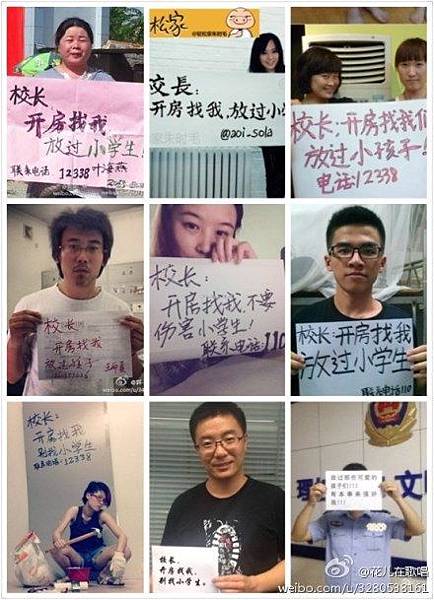 校长
开房找我
放过小学生！
联系电话12338 叶海燕
松家
校長：
开房找我，放过小学
@aoi_sola
校长：开房找我们
放过小孩子！
电话：12338
校长：
开房找我
校长：
开房找我，不要
伤害小学生！
联系电话：110
校长：开房找我
放过小学生
联系电话110
校长：
开房找我
别找小学生
联系电话：12338
校长，
开房找我，
别找小学生。
放过那些可爱的
孩子们!!!
有本事来强奸
我!!!
@花儿在歌唱
weibo.com/u/3280538161